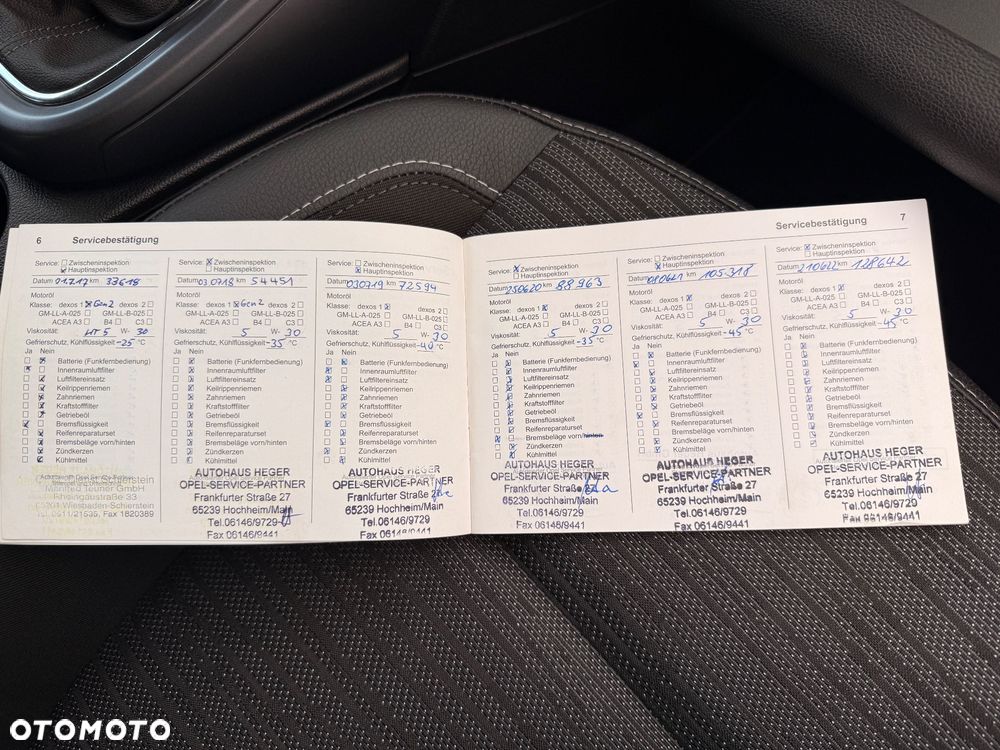 6 Servicebestätigung
Service: Zwischeninspektion
Hauptinspektion
Datum 01.12.17 km 33618
Motoröl
Klasse: dexos 1 Gen2 dexos 2
GM-LL-A-025 GM-LL-B-025
ACEA A3 B4 C3
Viskosität: W- 30
Gefrierschutz, Kühlflüssigkeit -25 °C
Ja Nein
Batterie (Funkfernbedienung)
Innenraumluftfilter
Luftfiltereinsatz
Keilrippenriemen
Zahnriemen
Kraftstofffilter
Getriebeöl
Bremsflüssigkeit
Reifenreparaturset
Bremsbeläge vorn/hinten
Zündkerzen
Kühlmittel
Manfred Teuner GmbH
Rheingaustraße 33
65201 Wiesbaden-Schierstein
Tel. 0611/21535, Fax 1820389
Service: Zwischeninspektion
Hauptinspektion
Datum 03 0718 km 54451
Motoröl
Klasse: dexos 1 Gen2 dexos 2
GM-LL-A-025 GM-LL-B-025
ACEA A3 B4 C3
Viskosität: 5 W- 30
Gefrierschutz, Kühlflüssigkeit -35 °C
Ja Nein
Batterie (Funkfernbedienung)
Innenraumluftfilter
Luftfiltereinsatz
Keilrippenriemen
Zahnriemen
Kraftstofffilter
Getriebeöl
Bremsflüssigkeit
Reifenreparaturset
Bremsbeläge vorn/hinten
Zündkerzen
Kühlmittel
AUTOHAUS HEGER
OPEL-SERVICE-PARTNER
Frankfurter Straße 27
65239 Hochheim/Main
Tel.06146/9729
Fax 06146/9441
Service: Zwischeninspektion
Hauptinspektion
Datum 030719 km 72594
Motoröl
Klasse: dexos 1 dexos 2
GM-LL-A-025 GM-LL-B-025
ACEA A3 B4 C3
Viskosität: 5 W- 30
Gefrierschutz, Kühlflüssigkeit -40 °C
Ja Nein
Batterie (Funkfernbedienung)
Innenraumluftfilter
Luftfiltereinsatz
Keilrippenriemen
Zahnriemen
Kraftstofffilter
Getriebeöl
Bremsflüssigkeit
Reifenreparaturset
Bremsbeläge vorn/hinten
Zündkerzen
Kühlmittel
AUTOHAUS HEGER
OPEL-SERVICE-PARTNER
Frankfurter Straße 27
65239 Hochheim/Main
Tel.06146/9729
Fax 06146/9441
Servicebestätigung 7
Service: Zwischeninspektion
Hauptinspektion
Datum 250620 km 88963
Motoröl
Klasse: dexos 1 dexos 2
GM-LL-A-025 GM-LL-B-025
ACEA A3 B4 C3
Viskosität: 5 W- 30
Gefrierschutz, Kühlflüssigkeit -35 °C
Ja Nein
Batterie (Funkfernbedienung)
Innenraumluftfilter
Luftfiltereinsatz
Keilrippenriemen
Zahnriemen
Kraftstofffilter
Getriebeöl
Bremsflüssigkeit
Reifenreparaturset
Bremsbeläge vorn/hinten
Zündkerzen
Kühlmittel
AUTOHAUS HEGER
OPEL-SERVICE-PARTNER
Frankfurter Straße 27
65239 Hochheim/Main
Tel.06146/9729
Fax 06146/9441
Service: Zwischeninspektion
Hauptinspektion
Datum km 105318
Motoröl
Klasse: dexos 1 dexos 2
GM-LL-A-025 GM-LL-B-025
ACEA A3 B4 C3
Viskosität: 5 W- 30
Gefrierschutz, Kühlflüssigkeit -45 °C
Ja Nein
Batterie (Funkfernbedienung)
Innenraumluftfilter
Luftfiltereinsatz
Keilrippenriemen
Zahnriemen
Kraftstofffilter
Getriebeöl
Bremsflüssigkeit
Reifenreparaturset
Bremsbeläge vorn/hinten
Zündkerzen
Kühlmittel
AUTOHAUS HEGER
OPEL-SERVICE-PARTNER
Frankfurter Straße 27
65239 Hochheim/Main
Tel.06146/9729
Fax 06146/9441
Service: Zwischeninspektion
Hauptinspektion
Datum 210622 km 128642
Motoröl
Klasse: dexos 1 dexos 2
GM-LL-A-025 GM-LL-B-025
ACEA A3 B4 C3
Viskosität: 5 W- 30
Gefrierschutz, Kühlflüssigkeit -45 °C
Ja Nein
Batterie (Funkfernbedienung)
Innenraumluftfilter
Luftfiltereinsatz
Keilrippenriemen
Zahnriemen
Kraftstofffilter
Getriebeöl
Bremsflüssigkeit
Reifenreparaturset
Bremsbeläge vorn/hinten
Zündkerzen
Kühlmittel
AUTOHAUS HEGER
OPEL-SERVICE-PARTNER
Frankfurter Straße 27
65239 Hochheim/Main
Tel.06146/9729
Fax 06146/9441
OTOMOTO